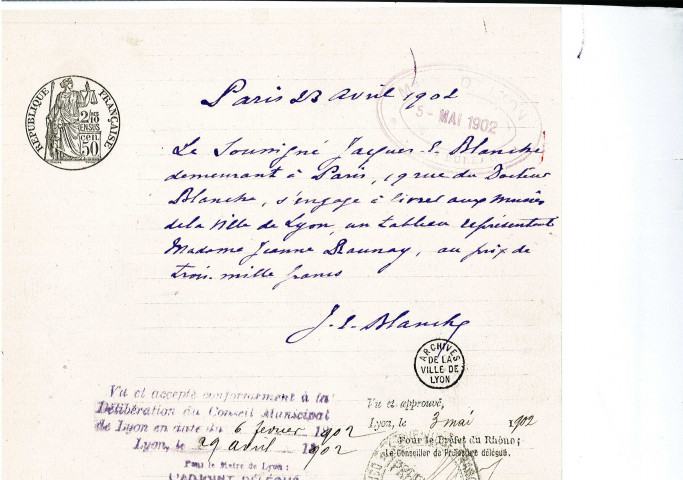 Paris 23 avril 1902
RÉPUBLIQUE FRANÇAISE
2 10es
EN SUS
50 cen
5 - MAI 1902
Le Soussigné Jacques-E. Blanche
demeurant à Paris, 19 rue du Docteur
Blanche, s'engage à livrer aux musées
de la ville de Lyon, un tableau représentant
Madame Jeanne Raunay, au prix de
trois-mille francs
J.-E. Blanche
ARCHIVES
DE LA
VILLE DE
LYON
Vu et accepté conformément à la
Délibération du Conseil Municipal
de Lyon en date du 6 février 1902
Lyon, le 29 avril 1902
Pour le Maire de Lyon :
L'ADJOINT DÉLÉGUÉ
Vu et approuvé,
Lyon, le 3 mai 1902
Pour le Préfet du Rhône ;
Le Conseiller de Préfecture délégué.